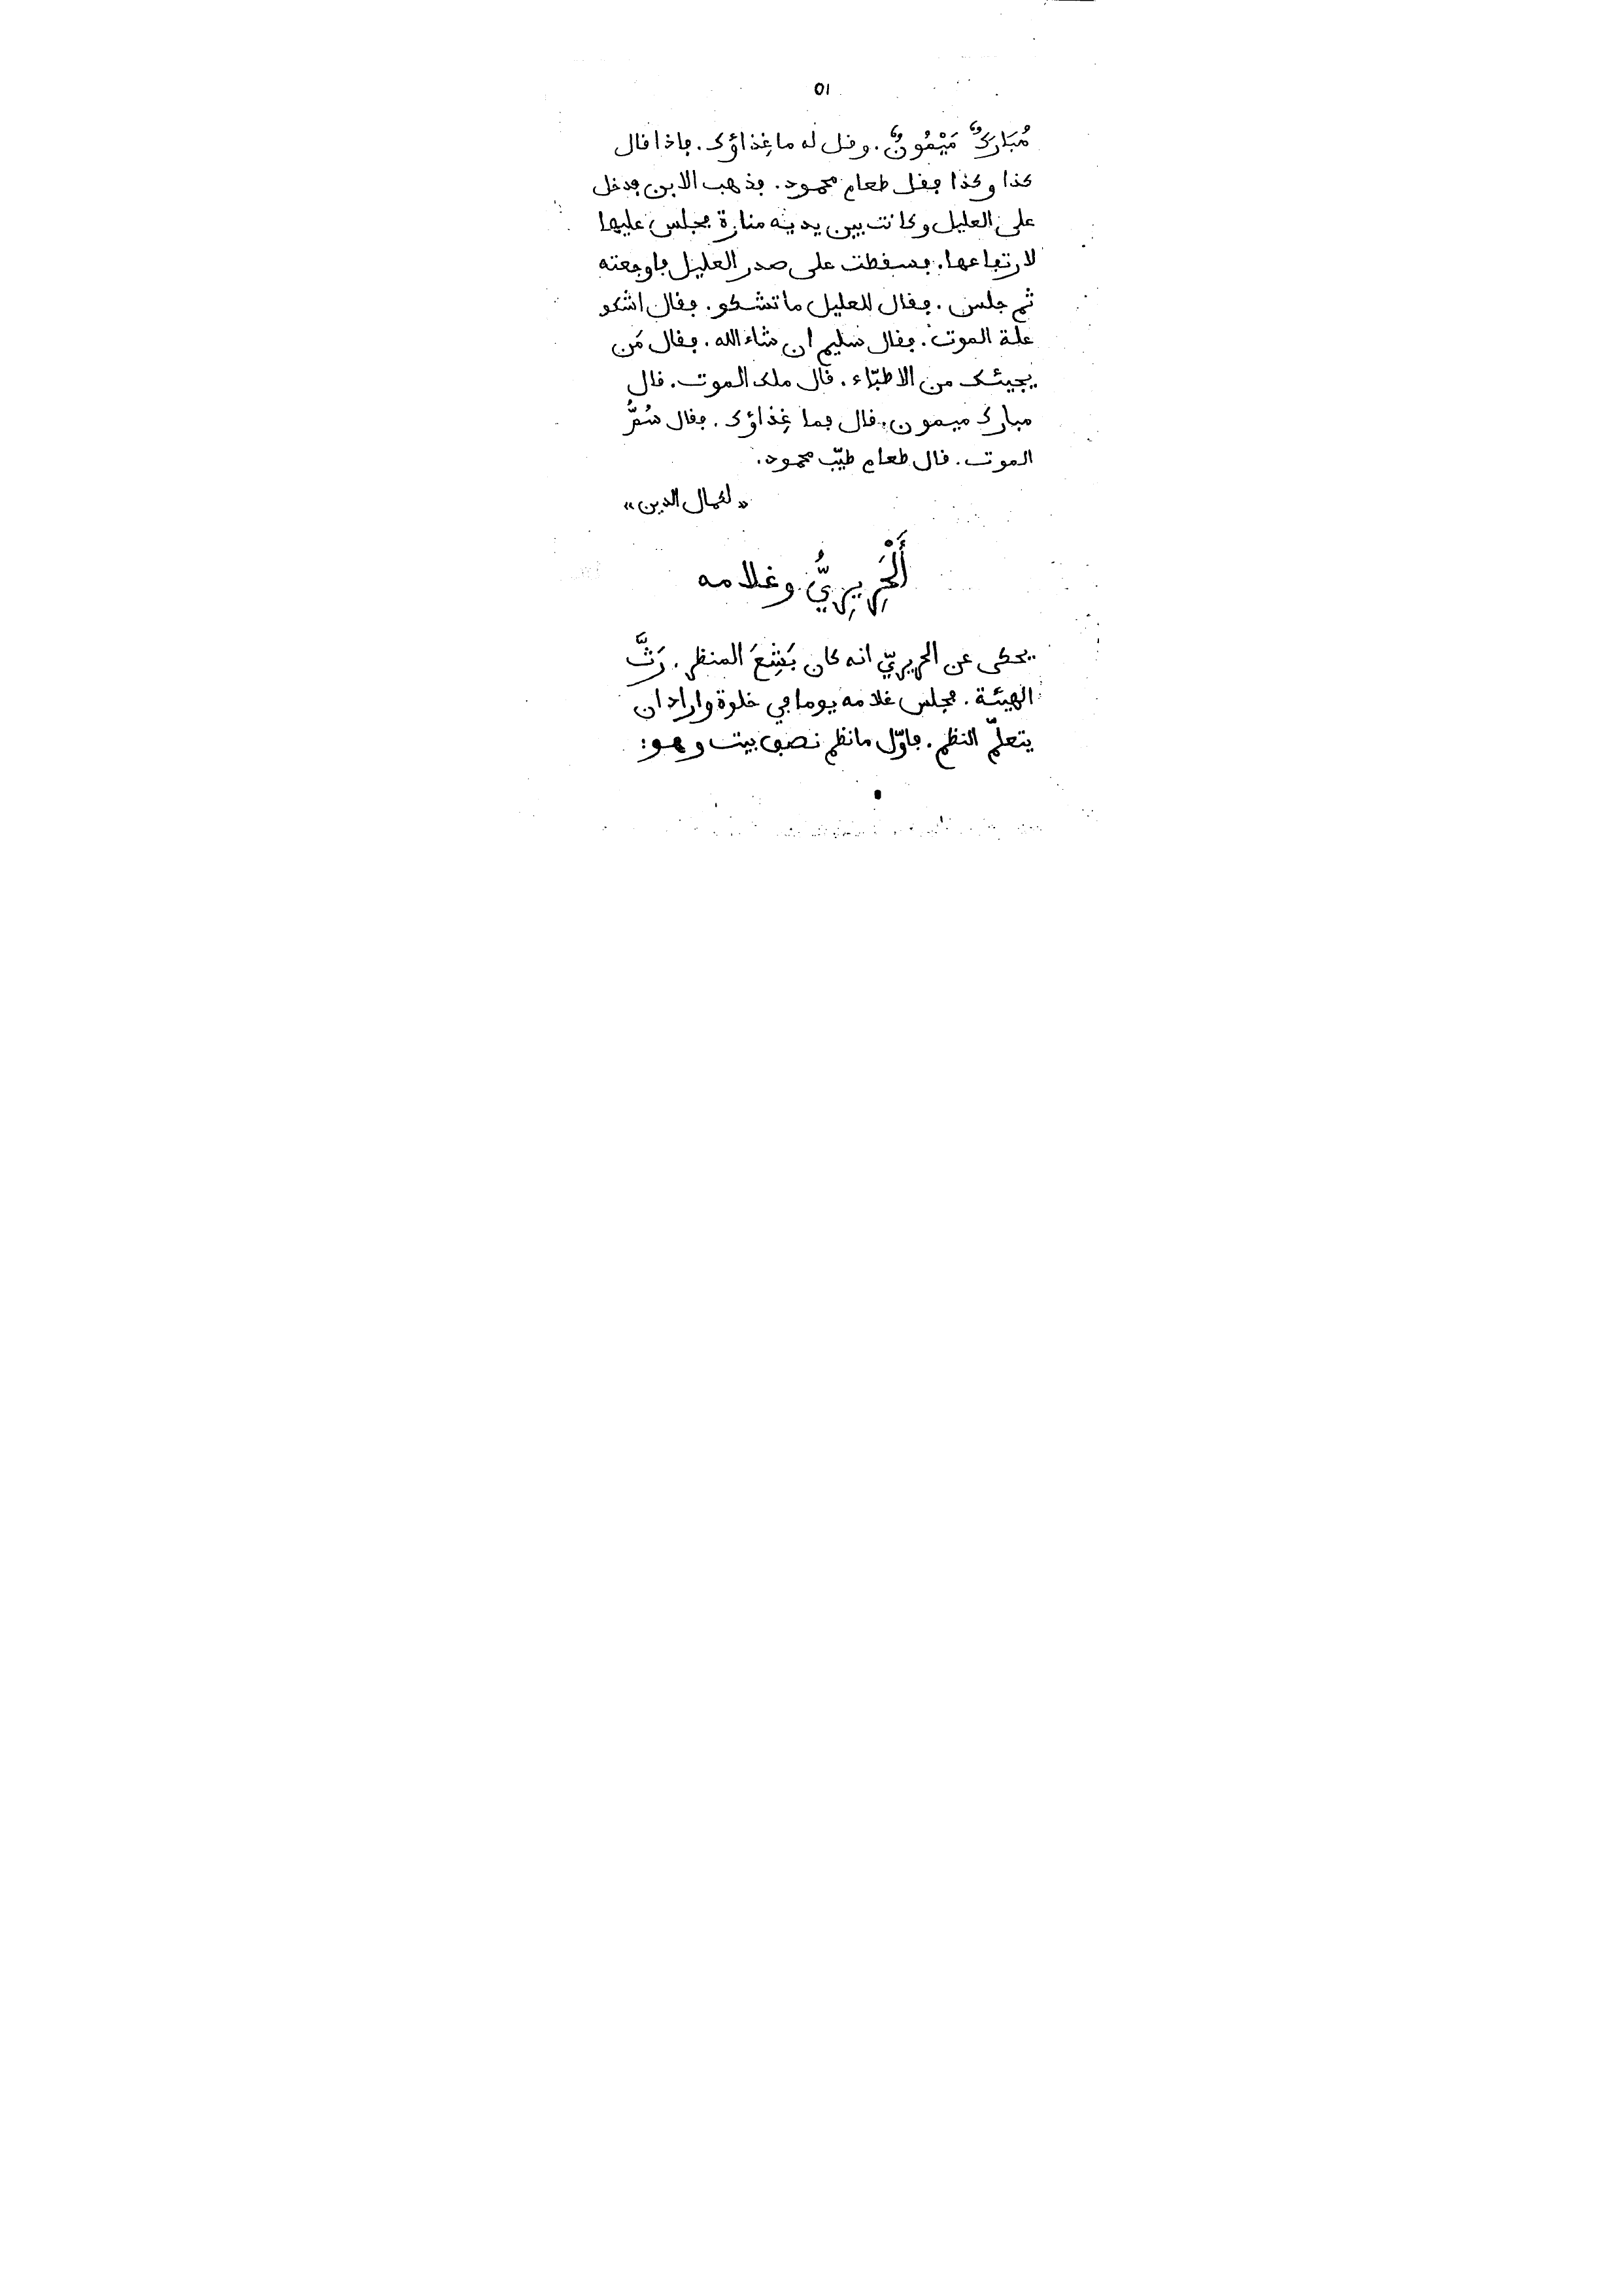 ٥١
مُبَارَكٌ مَيْمُونٌ. وقل له ما غِذاؤك. فاذا قال
كذا وكذا فقل طعام محمود. فذهب الابن فدخل
على العليل وكانت بين يديه منارة فجلس عليها
لارتفاعها. فسقطت على صدر العليل فاوجعته
ثم جلس. فقال للعليل ما تشكو. فقال اشكو
علة الموت. فقال سليم ان شاء الله. فقال مَن
يجيئك من الاطبّاء. قال ملك الموت. قال
مبارك ميمون. قال فما غِذاؤك. فقال سُمُّ
الموت. قال طعام طيّب محمود.
«لكمال الدين»
أَلْحَرِيرِيُّ وغلامه
يحكى عن الحريريّ انه كان بَشِعَ المنظر. رَثَّ
الهيئة. فجلس غلامه يوما في خلوة واراد ان
يتعلّم النظم. فاوّل ما نظم نصف بيت وهو: